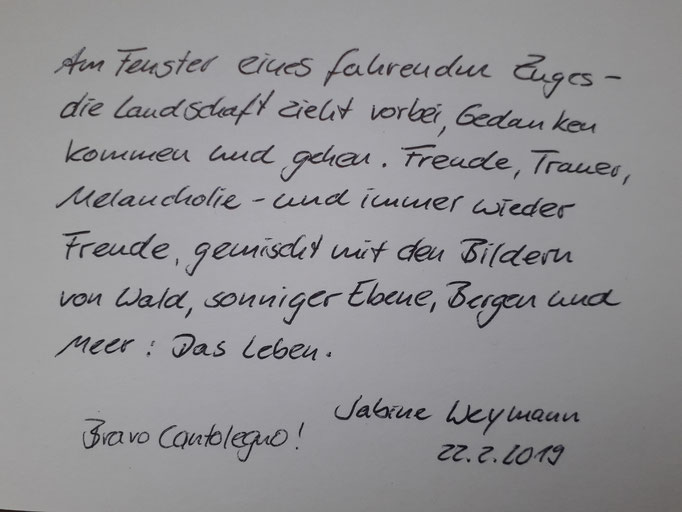 Am Fenster eines fahrenden Zuges –
die Landschaft zieht vorbei, Gedanken
kommen und gehen. Freude, Trauer,
Melancholie – und immer wieder
Freude, gemischt mit den Bildern
von Wald, sonniger Ebene, Bergen und
Meer : Das Leben.
Sabine Weymann
Bravo Cantolegno!
22.2.2019